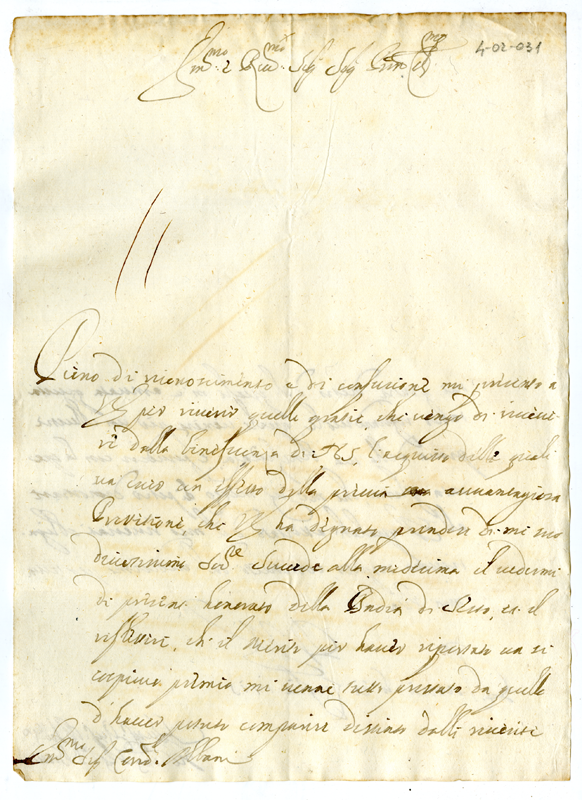 4-02-031
Em.mo e Rev.mo Sig.r Sig.r Pron. Col.mo
Pieno di riconoscimento e di confusione mi presento a
VE per riverir quelle grazie, che vengo di riceve
re dalla beneficenza di NS, l'acquisto delle quali
un puro effetto della previa avvantagiosa
Protetione, che VE ha degnato prendere di mi suo
devotissimo Ser.re Succede alla medesima il vedermi
di presente honorato della Badia di Sesto, et il
riflettere, che il merito per haver riportato un sì
copioso premio mi venne tutto prestato da quello
d'haver potuto comparire distinto dalle riverite
Em.mo Sig.r Card.le Albani